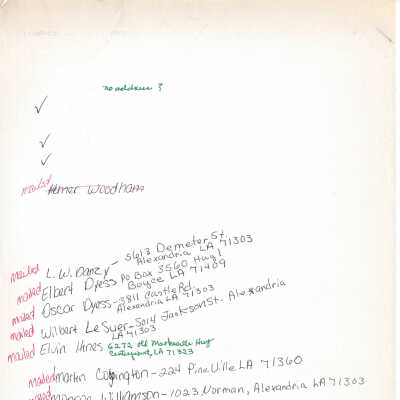 no address ?
mailed Elmer Woodham
5613 Demeter St
mailed L.W. Danzy Alexandria LA 71303
mailed Elbert Dyess PO Box 3560 Hwy 1
Boyce LA 71409
mailed Oscar Dyess - 3811 Castle Rd.
Alexandria LA 71303
mailed Wilbert LeSuer - 5014 Jackson St. Alexandria
LA 71303
mailed Elvin Hines 6272 Old Marksville Hwy
LA 71323
mailed Martin - 224 Pineville LA 71360
Williamson - 1023 Norman, Alexandria LA 71303